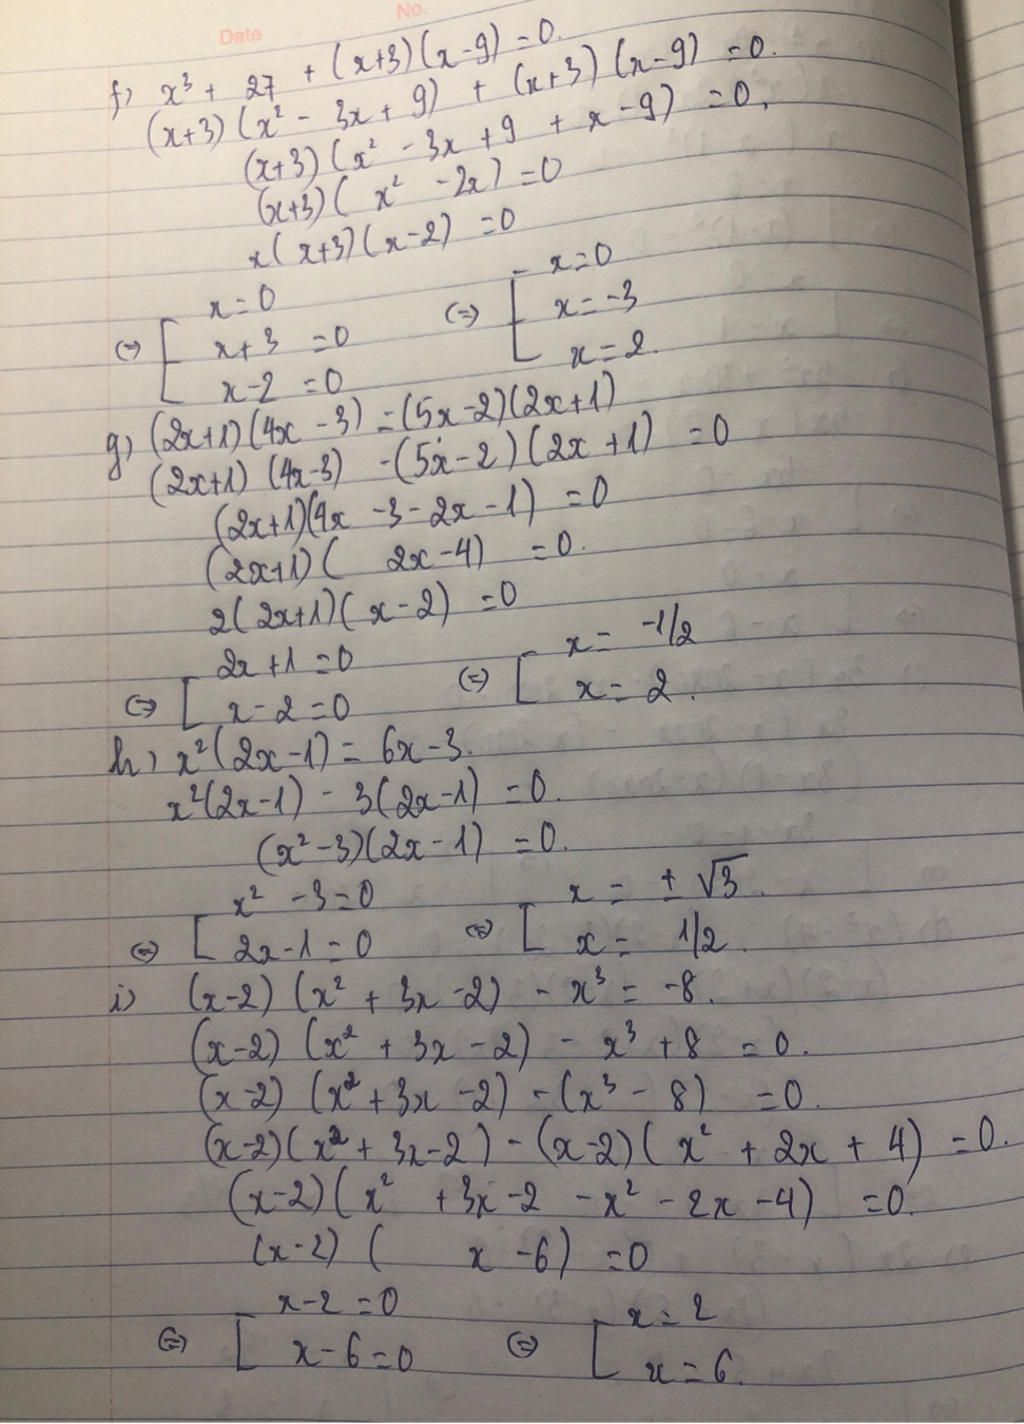 Date No.
f) x³ + 27 + (x+3)(x-9) = 0.
(x+3)(x² - 3x + 9) + (x+3)(x-9) = 0.
(x+3)(x² - 3x + 9 + x - 9) = 0.
(x+3)( x² - 2x) = 0
x(x+3)(x-2) = 0
x = 0 x = 0
(=) [ x+3 = 0 (=) [ x = -3
x-2 = 0 x = 2.
g) (2x+1)(4x - 3) = (5x-2)(2x+1)
(2x+1)(4x-3) - (5x-2)(2x+1) = 0
(2x+1)(4x - 3 - 2x - 1) = 0
(2x+1)( 2x - 4) = 0.
2(2x+1)(x-2) = 0
2x+1 = 0 x = -1/2
(=) [ x-2 = 0 (=) [ x = 2.
h) x²(2x-1) = 6x-3.
x²(2x-1) - 3(2x-1) = 0.
(x²-3)(2x-1) = 0.
x² - 3 = 0 x = ± √3.
(=) [ 2x-1 = 0 (=) [ x = 1/2.
i) (x-2)(x² + 3x - 2) - x³ = -8.
(x-2)(x² + 3x - 2) - x³ + 8 = 0.
(x-2)(x² + 3x - 2) - (x³ - 8) = 0.
(x-2)(x² + 3x - 2) - (x-2)(x² + 2x + 4) = 0.
(x-2)(x² + 3x - 2 - x² - 2x - 4) = 0.
(x-2)( x - 6) = 0
x-2 = 0 x = 2
(=) [ x-6 = 0 (=) [ x = 6.